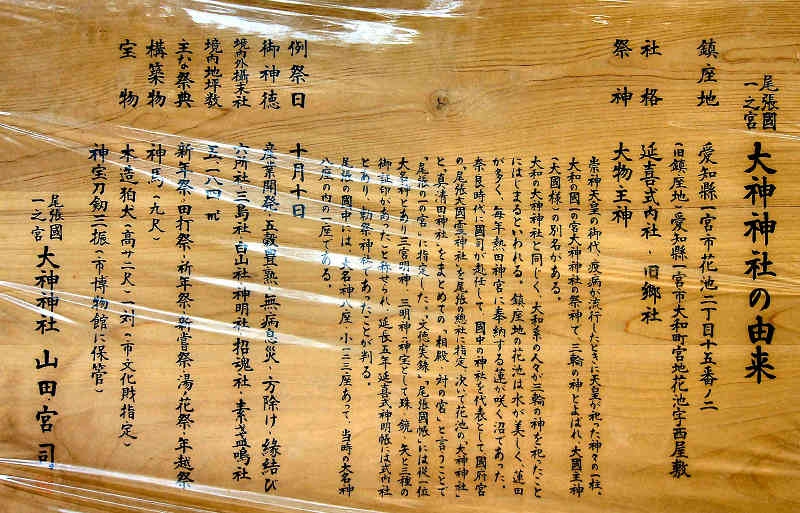 尾張國
一之宮 大神神社の由来
鎮座地 愛知縣一宮市花池二丁目十五番ノ二
(旧鎮座地 愛知縣一宮市大和町宮地花池字西屋敷)
社格 延喜式内社・旧郷社
祭神 大物主神
崇神天皇の御代、疫病が流行したときに天皇が祀った神々の一柱、
大和の國一の宮大神神社の祭神で、三輪の神とよばれ、大國主神
(大國様)の別名がある。
大和の大神神社と同じく、大和系の人々が三輪の神を祀ったこと
にはじまるといわれる。鎮座地の花池は水が美しく、蓮田
が多く、毎年熱田神宮に奉納する蓮が咲く沼であった。
奈良時代に國司が赴任して、國中の神社を代表として國府宮
の「尾張大国霊神社」を尾張の總社に指定、次いで花池の「大神神社」
と「真清田神社」をまとめての「相殿・対の宮」と言うことで
「尾張一の宮」に指定した、「文徳実録」「尾張國帳」には従一位
大名神とあり三宮明神・三明神・神宝として珠・鏡・矢と三種の
御証印があったと称せられ、延長五年延喜式神明帳には式内社
とあり、勅祭神社であったことが判る。
尾張の國中には、大名神八座・小一二三座あって、当時の大名神
八座の内の一座である。
例祭日 十月十日
御神徳 産業開発・五穀豊熟・無病息災・方除け・縁結び
境内外摂末社 六所社・三島社・白山社・神明社・招魂社・素盞鳴社
境内地坪数 五、一八四㎡
主な祭典 新年祭・田打祭・祈年祭・新嘗祭・湯ノ花祭・年越祭
構築物 神馬(九尺)
木造狛犬(高サ二尺)一対(市文化財指定)
宝物 神宝刀釼三振(市博物館に保管)
尾張國
一之宮 大神神社 山田宮司